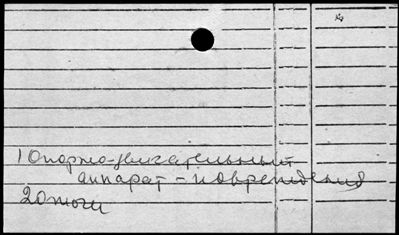 1 Опорно-двигательный
аппарат - повреждения
2 Ожоги